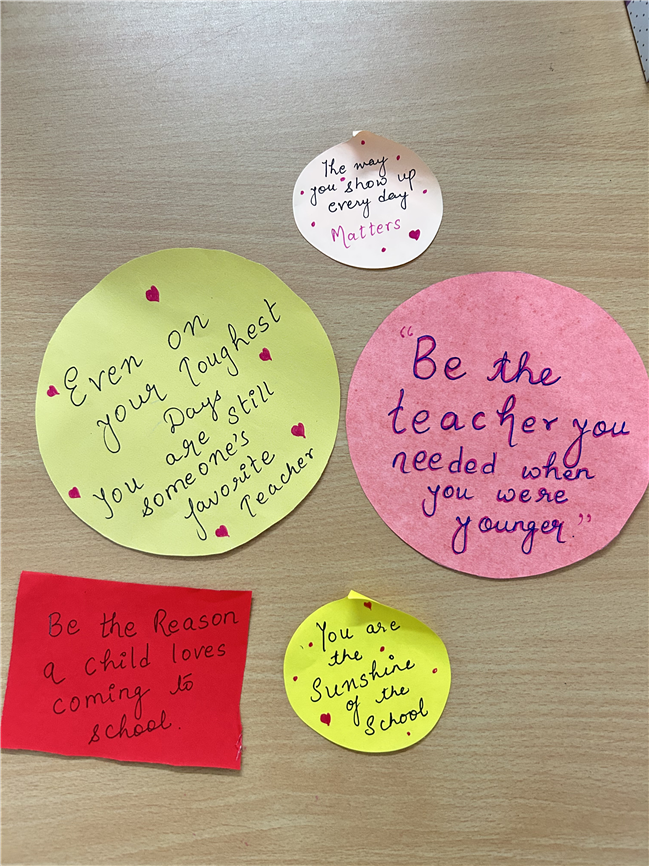 The way
you show up
every day
Matters
Even on
your Toughest
Days
You are still
someone's
favorite
Teacher
"Be the
teacher you
needed when
you were
younger."
Be the Reason
a child loves
coming to
school.
You are
the
Sunshine
of the
School